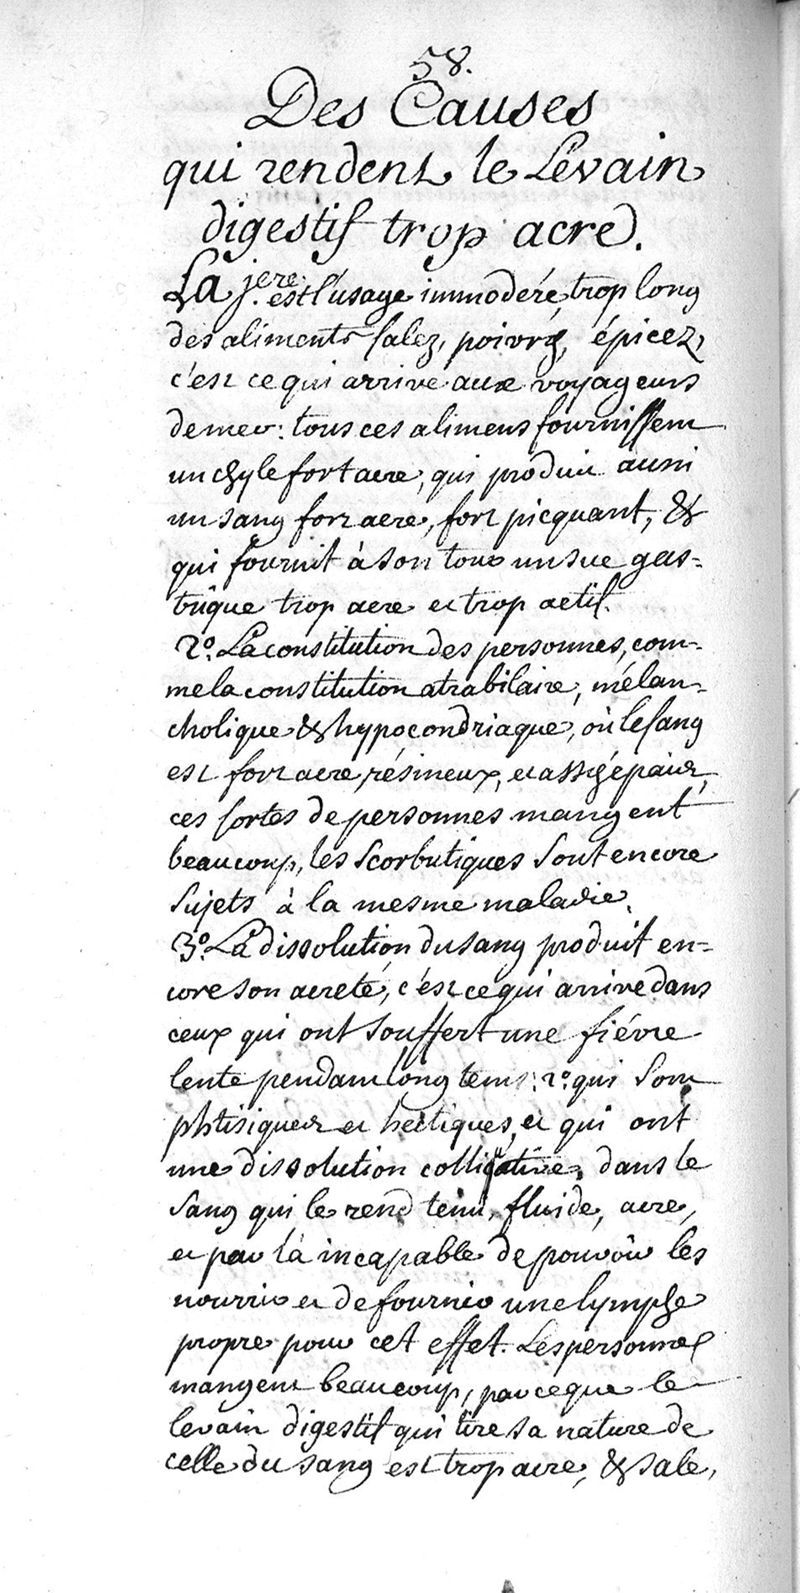 58.
Des Causes
qui rendent le Levain
digestif trop acre.
La jere. est l'usage immodéré, trop long
des aliments salez, poivrez, épicez,
c'est ce qui arrive aux voyageurs
de mer: tous ces alimens fournissent
un chyle fort acre, qui produit aussi
un sang fort acre, fort picquant, &
qui fournit à son tour un suc gas-
trique trop acre et trop actif.
2º. La constitution des personnes, com-
me la constitution atrabilaire, mélan-
cholique & hypocondriaque, où le sang
est fort acre, résineux, et assés épais,
ces sortes de personnes mangent
beaucoup, les Scorbutiques sont encore
sujets à la mesme maladie.
3º. La dissolution du sang produit en-
core son acreté, c'est ce qui arrive dans
ceux qui ont souffert une fiévre
lente pendant long tems; 2º. qui sont
phtisiques et hectiques, et qui ont
une dissolution colliquative, dans le
sang qui le rend tenu, fluide, acre,
et par là incapable de pouvoir les
nourrir et de fournir une lymphe
propre pour cet effet. Les personnes
mangent beaucoup, parceque le
levain digestif qui tire sa nature de
celle du sang est trop acre, & salé,